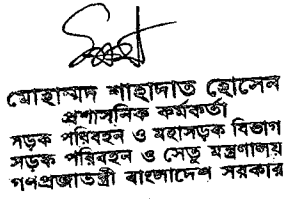 মোহাম্মদ শাহাদাত হোসেন
প্রশাসনিক কর্মকর্তা
সড়ক পরিবহন ও মহাসড়ক বিভাগ
সড়ক পরিবহন ও সেতু মন্ত্রণালয়
গণপ্রজাতন্ত্রী বাংলাদেশ সরকার